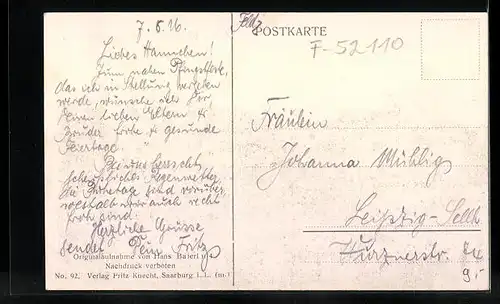 7.6.16.
Liebes Hannchen!
Zum nahen Pfingstfeste,
das ich in Stellung verleben
werde, wünsche ich Dir,
Deinen lieben Eltern &
Bruder frohe & gesunde
Feiertage.
Bei uns herrscht
scheussliches Regenwetter,
die Ruhetage sind vorüber,
weshalb wir auch recht
froh sind.
Herzliche Grüsse
sendet Dein Fritz
Originalaufnahme von Hans Baierl
Nachdruck verboten
No. 92. Verlag Fritz Knecht, Saarburg i. L. (m.)
Feld
POSTKARTE
F-52110
Fräulein
Johanna Mühlig
Leipzig-Sell
Wurznerstr.